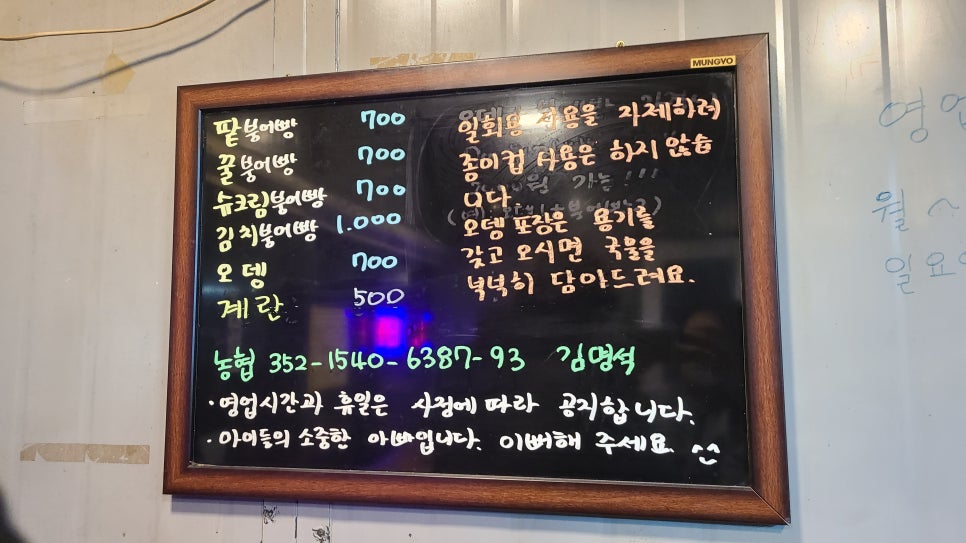 MUNGYO
팥붕어빵 700
꿀붕어빵 700
슈크림붕어빵 700
김치붕어빵 1.000
오뎅 700
계란 500
일회용 사용을 자제하려
종이컵 사용은 하지 않습
니다.
오뎅 포장은 용기를
갖고 오시면 국물을
넉넉히 담아드려요.
농협 352-1540-6387-93 김명석
·영업시간과 휴일은 사정에 따라 공지합니다.
·아이들의 소중한 아빠입니다. 이뻐해 주세요 ^^
영업
월 ~
일요